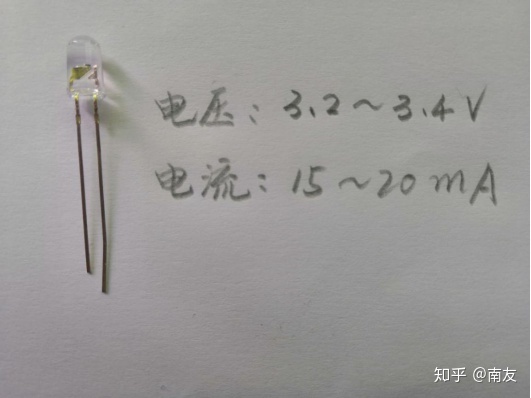 电压：3.2～3.4V
电流：15～20mA
知乎 @南友